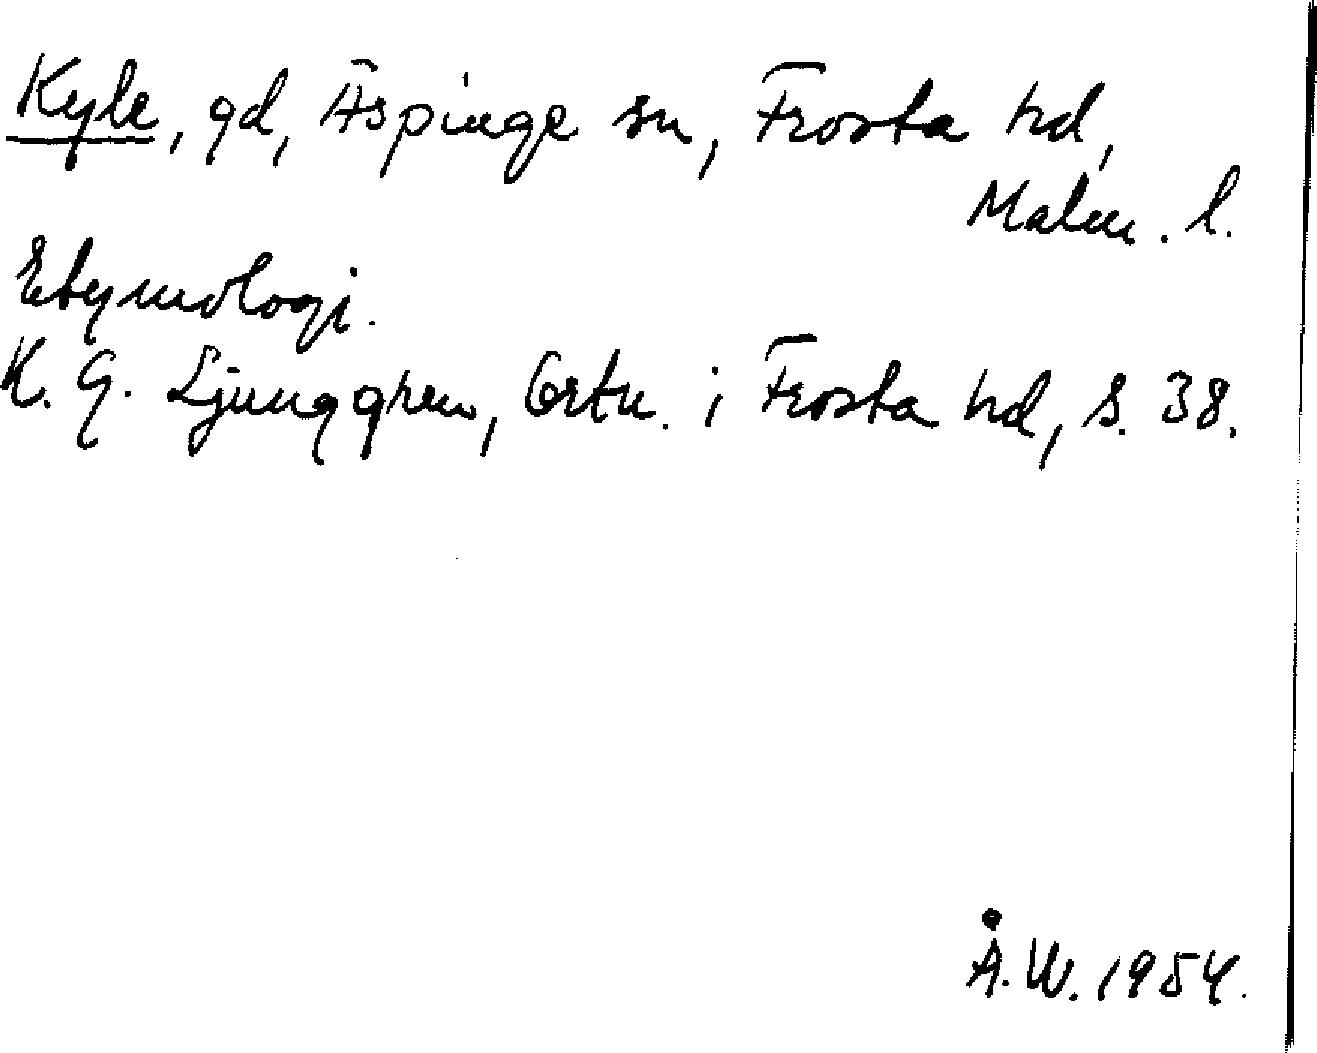 Kyle, gd, Äspinge sn, Frosta hd,
Malm. l.
Etymologi.
K. G. Ljunggren, Ortn. i Frosta hd, s. 38.
Å. W. 1954.